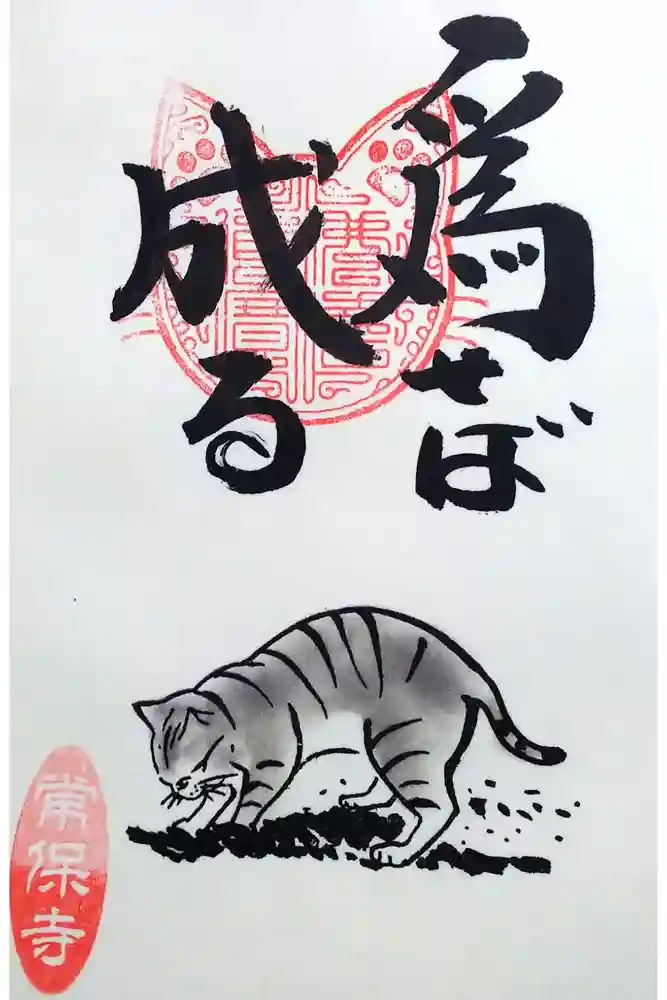 爲せば
成る
常保寺